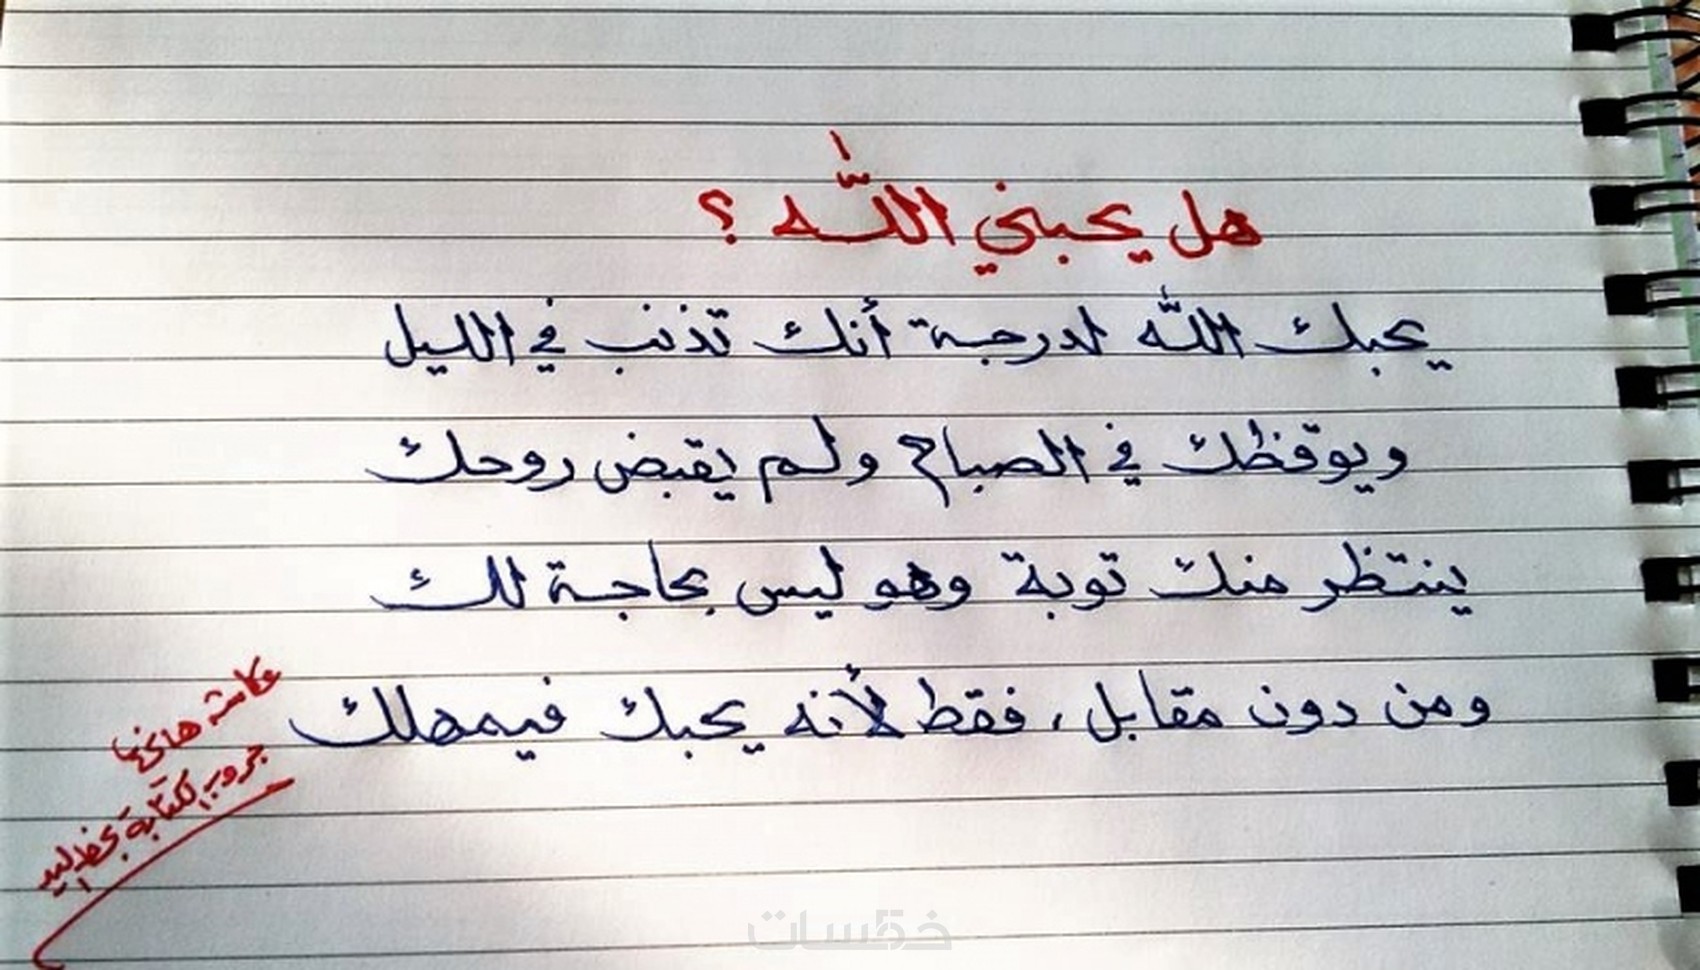 هل يحبني اللّٰه ؟
يحبك اللّٰه لدرجة أنك تذنب في الليل
ويوقظك في الصباح ولم يقبض روحك
ينتظر منك توبة وهو ليس بحاجة لك
ومن دون مقابل ، فقط لأنه يحبك فيمهلك
جروب الكتابة بخط اليد
خمسات